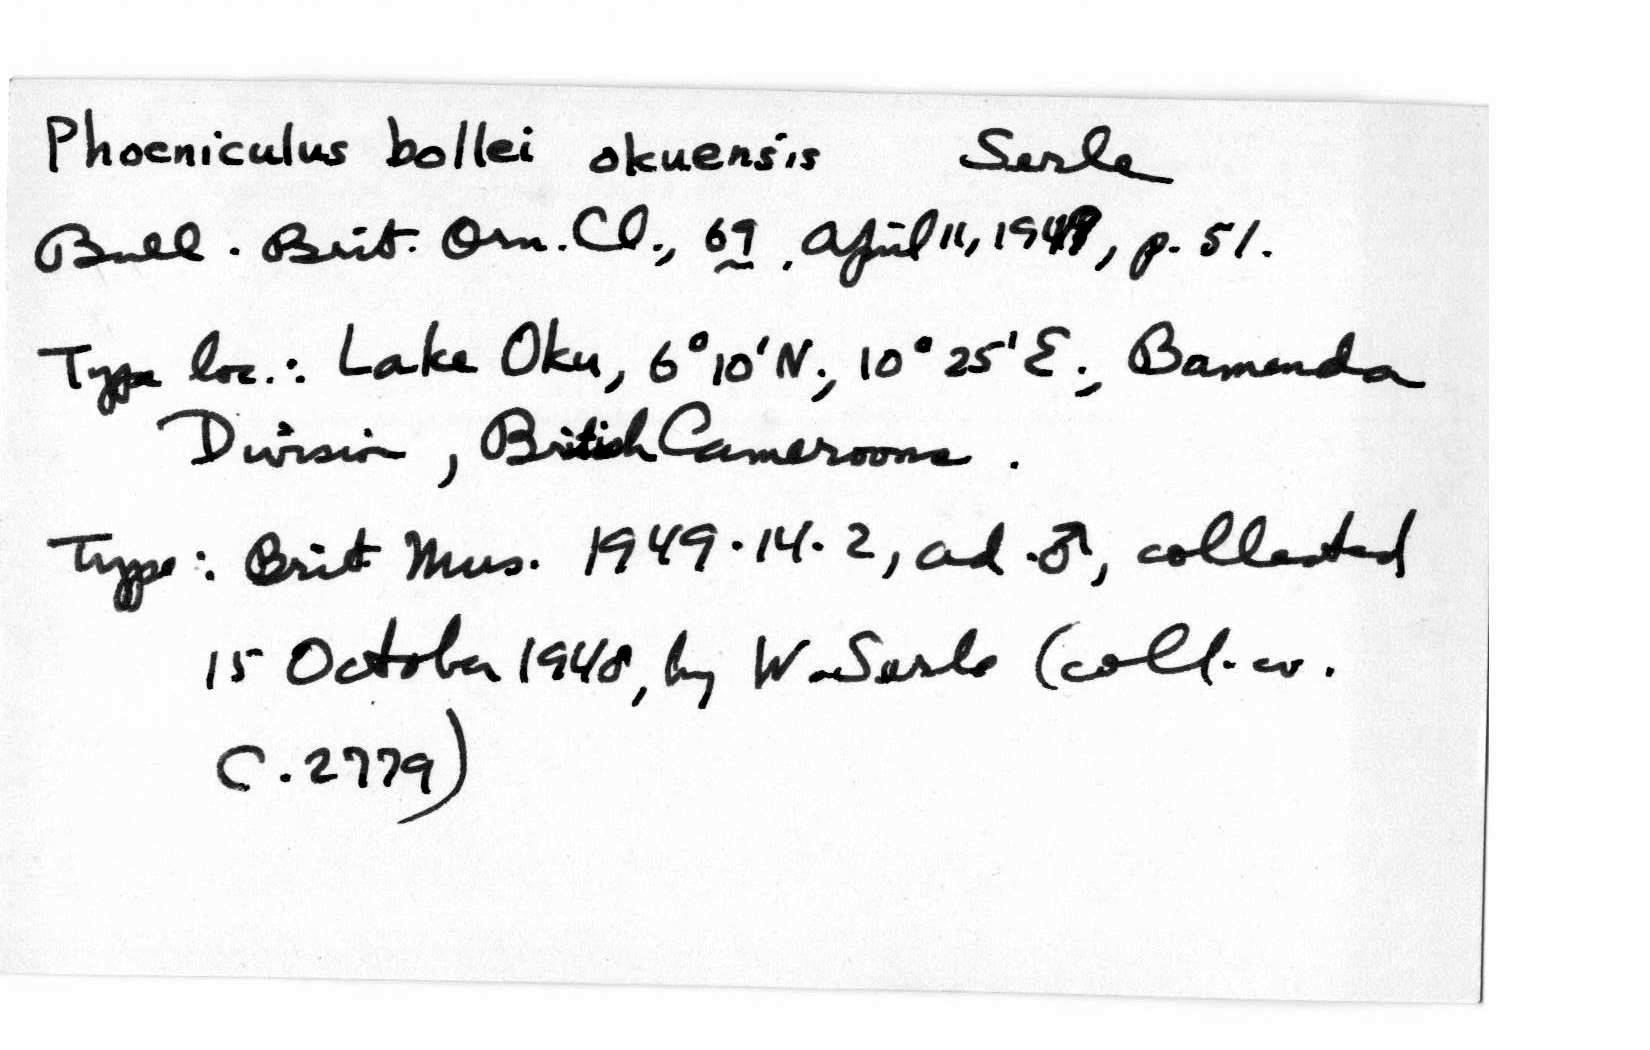 Phoeniculus bollei okuensis Serle
Bull. Brit. Orn. Cl., 69, April 11, 1949, p. 51.
Type loc.: Lake Oku, 6°10'N., 10°25'E., Bamenda
Division, British Cameroons.
Type: Brit Mus. 1949.14.2, ad. ♂, collected
15 October 1948, by W. Serle (coll. no.
C.2779)